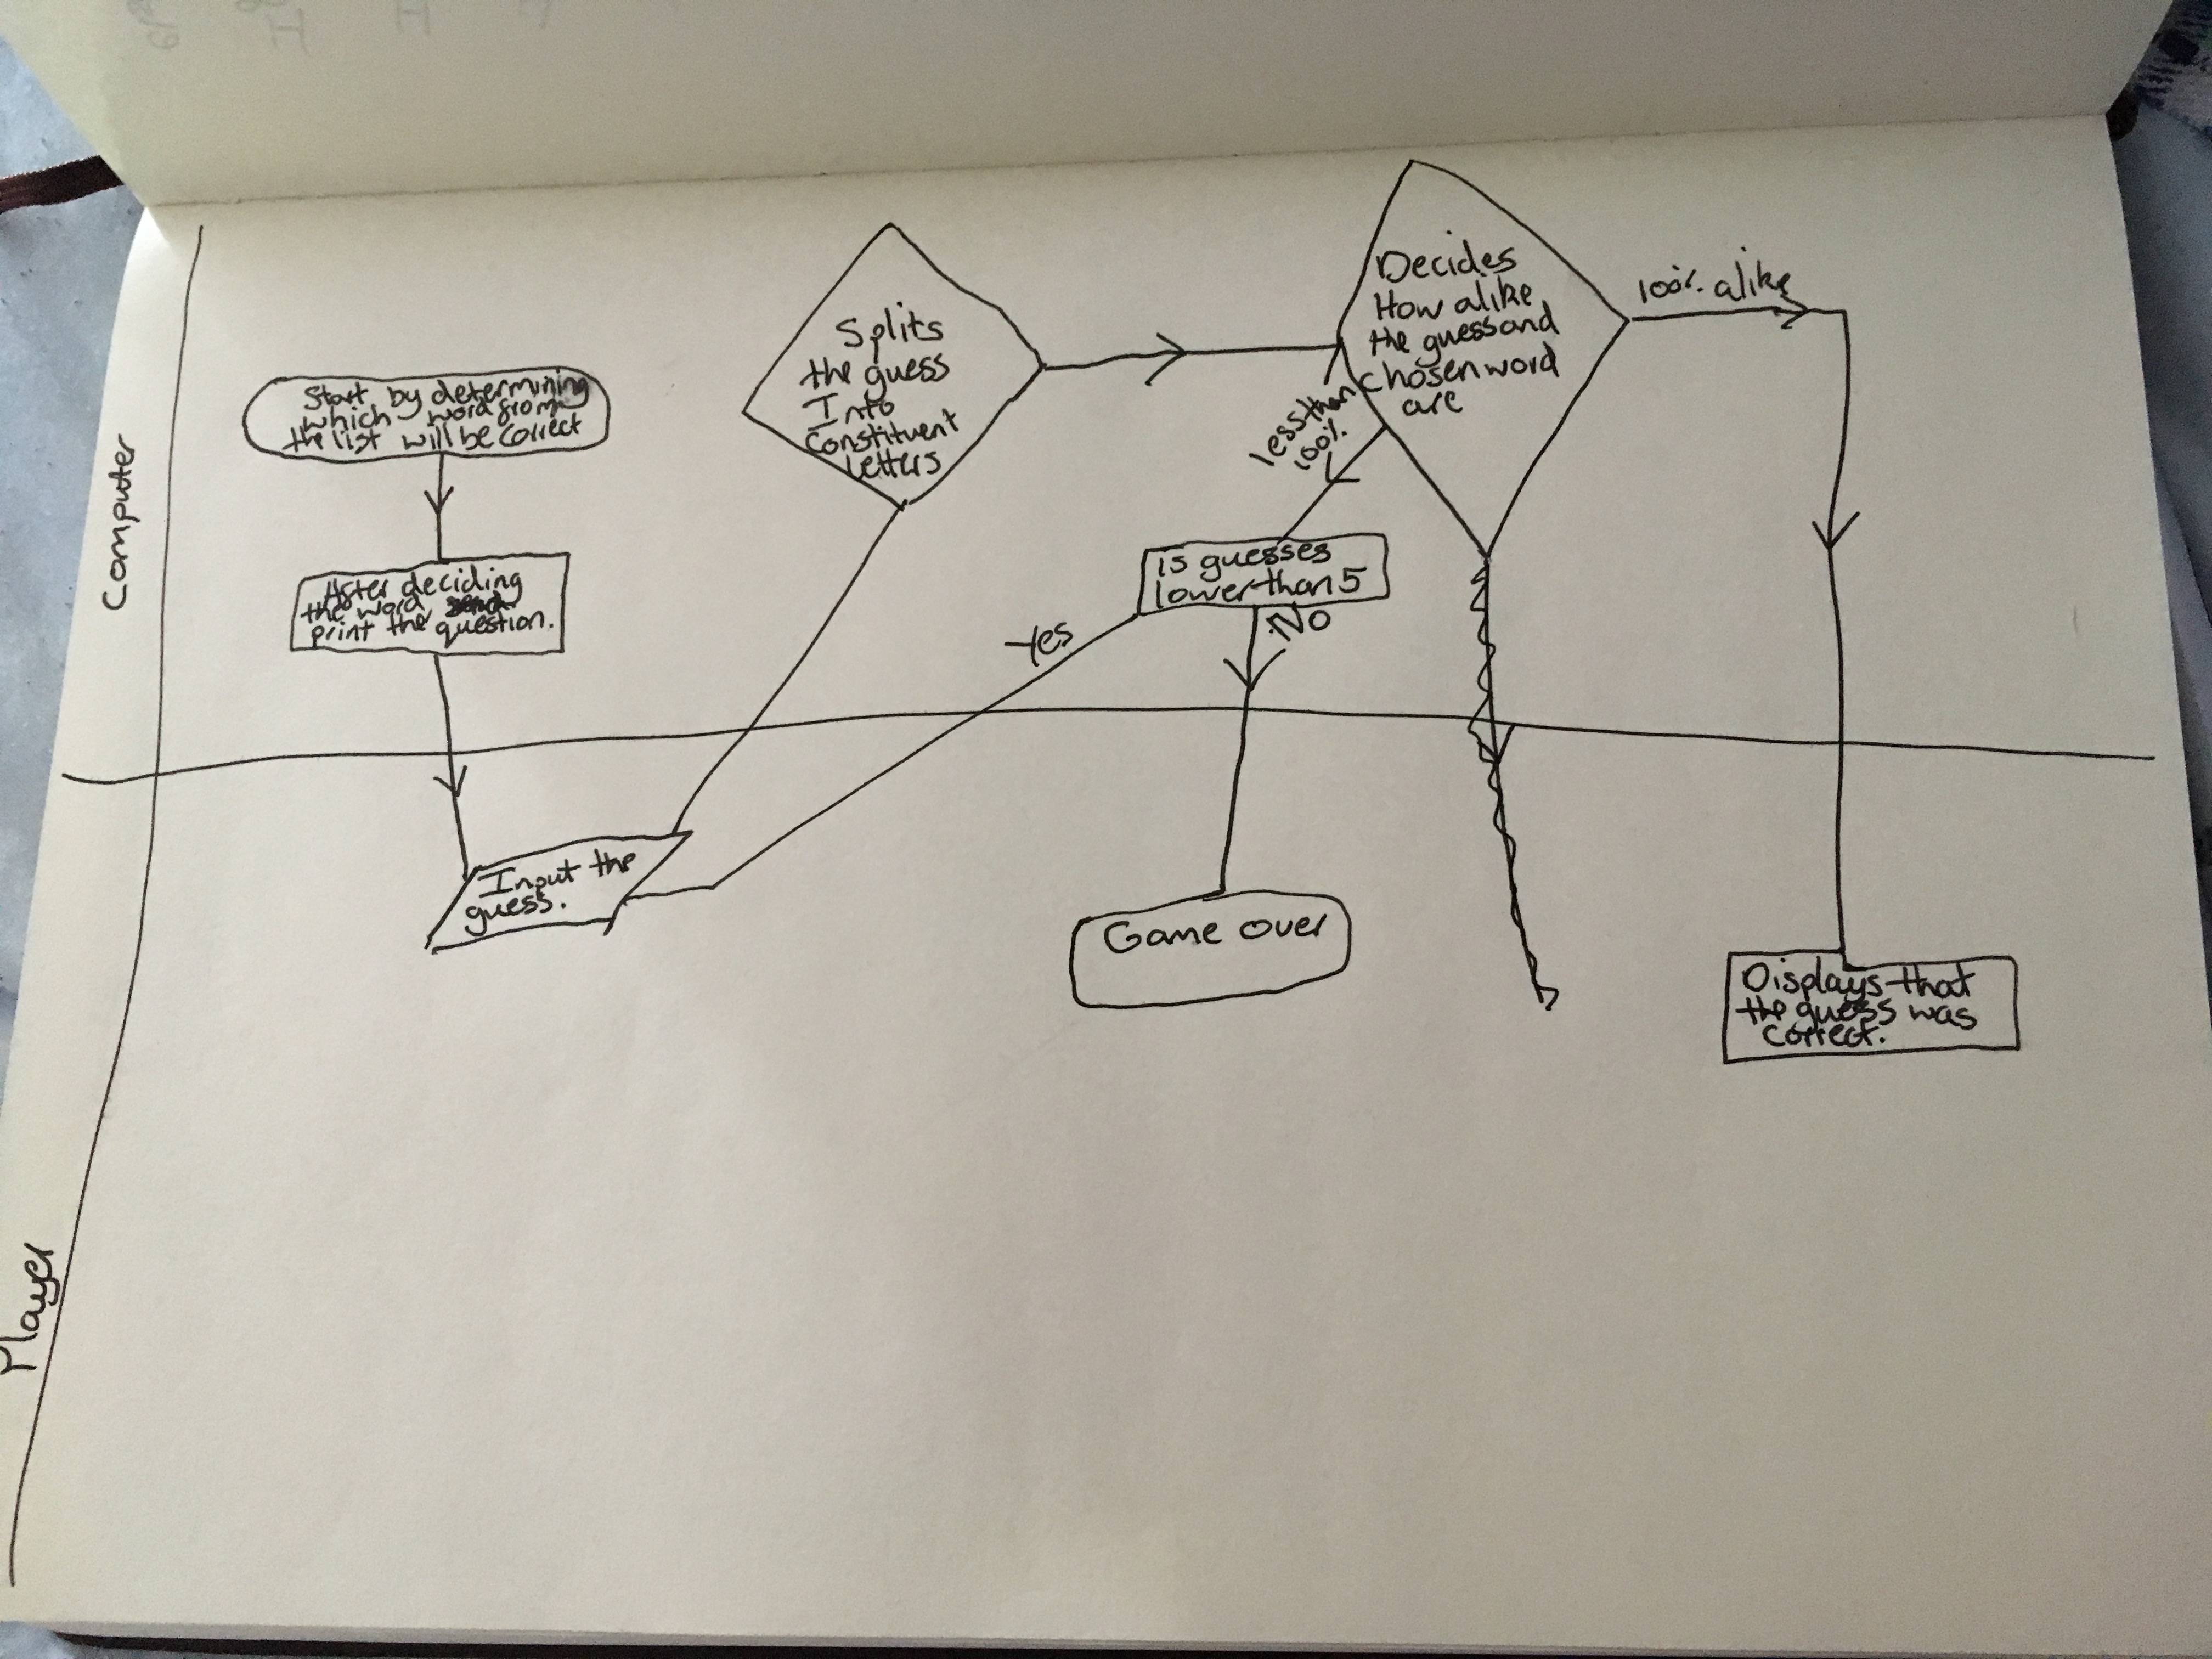 Player
Computer
Start by determining
which word from
the list will be correct
After deciding
the word
print the question.
Input the
guess.
Splits
the guess
Into
constituent
letters
Decides
How alike
the guess and
chosen word
are
less than
100%
is guesses
lower than 5
Yes
NO
Game over
100% alike
Displays that
the guess was
correct.